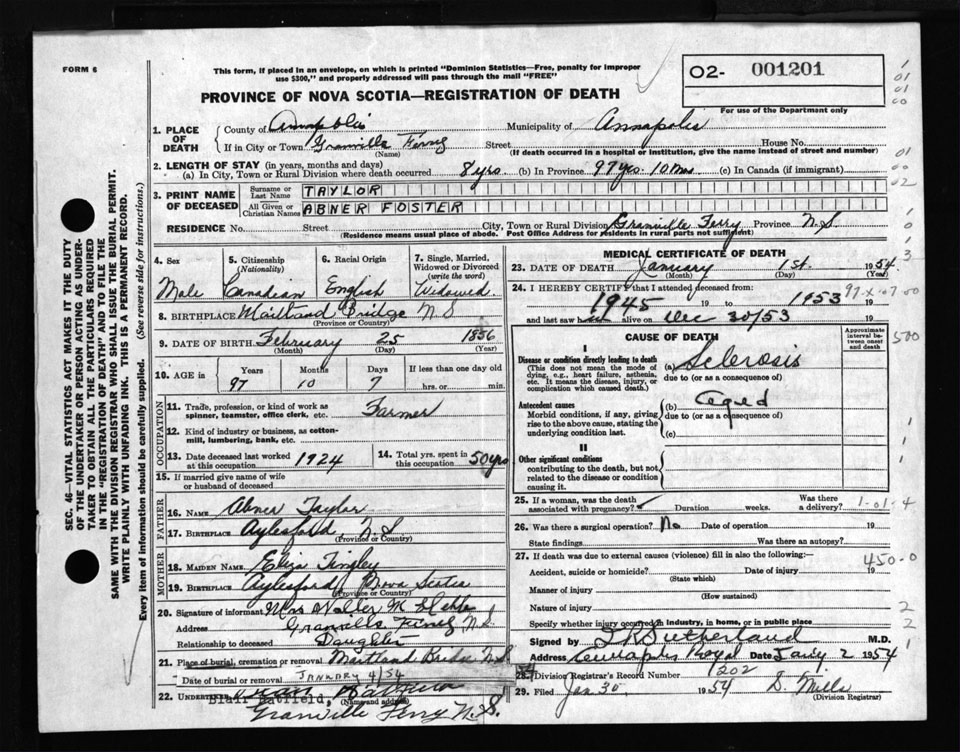 FORM 6
This form, if placed in an envelope, on which is printed "Dominion Statistics—Free, penalty for improper
use $300," and properly addressed will pass through the mail "FREE"
O2- 001201
PROVINCE OF NOVA SCOTIA—REGISTRATION OF DEATH
For use of the Department only
1. PLACE OF DEATH County of Annapolis Municipality of Annapolis
If in City or Town Granville Ferry Street House No.
(Name) (If death occurred in a hospital or institution, give the name instead of street and number)
2. LENGTH OF STAY (in years, months and days)
(a) In City, Town or Rural Division where death occurred 8 yrs (b) In Province 97 yrs. 10 mos (c) In Canada (if immigrant)
3. PRINT NAME OF DECEASED Surname or Last Name TAYLOR
All Given or Christian Names ABNER FOSTER
RESIDENCE No. Street City, Town or Rural Division Granville Ferry Province N.S.
(Residence means usual place of abode. Post Office Address for residents in rural parts not sufficient)
SEC. 46—VITAL STATISTICS ACT MAKES IT THE DUTY
OF THE UNDERTAKER OR PERSON ACTING AS UNDER-
TAKER TO OBTAIN ALL THE PARTICULARS REQUIRED
IN THE "REGISTRATION OF DEATH" AND TO FILE THE
SAME WITH THE DIVISION REGISTRAR WHO SHALL ISSUE THE BURIAL PERMIT.
WRITE PLAINLY WITH UNFADING INK. THIS IS A PERMANENT RECORD.
Every item of information should be carefully supplied. (See reverse side for instructions.)
4. Sex 5. Citizenship (Nationality) 6. Racial Origin 7. Single, Married, Widowed or Divorced (write the word)
Male Canadian English Widowed
8. BIRTHPLACE Maitland Bridge N.S
(Province or Country)
9. DATE OF BIRTH February 25 1856
(Month) (Day) (Year)
10. AGE in Years Months Days If less than one day old
97 10 7 hrs. or min.
OCCUPATION
11. Trade, profession, or kind of work as spinner, teamster, office clerk, etc. Farmer
12. Kind of industry or business, as cotton-mill, lumbering, bank, etc.
13. Date deceased last worked at this occupation 1924 14. Total yrs. spent in this occupation 50 yrs
15. If married give name of wife or husband of deceased
FATHER
16. NAME Abner Taylor
17. BIRTHPLACE Aylesford N.S
(Province or Country)
MOTHER
18. MAIDEN NAME Eliza Tingley
19. BIRTHPLACE Aylesford Nova Scotia
(Province or Country)
20. Signature of informant Mrs Walter M
Address Granville Ferry N.S
Relationship to deceased Daughter
21. Place of burial, cremation or removal Maitland Bridge N.S
Date of burial or removal JANUARY 4/54
22. Undertaker
Blair Hatfield, (Name and address)
Granville Ferry N.S.
MEDICAL CERTIFICATE OF DEATH
23. DATE OF DEATH January 1st. 1954
(Month) (Day)
24. I HEREBY CERTIFY that I attended deceased from:
1945 19 to 1953 19
and last saw him alive on Dec 30/53
CAUSE OF DEATH
Approximate interval between onset and death
I
Disease or condition directly leading to death (a) Sclerosis
(This does not mean the mode of dying, e.g., heart failure, asthenia, etc. It means the disease, injury, or complication which caused death.) due to (or as a consequence of)
Antecedent causes (b) Aged
Morbid conditions, if any, giving rise to the above cause, stating the underlying condition last. due to (or as a consequence of)
(c)
II
Other significant conditions
contributing to the death, but not
related to the disease or condition
causing it.
25. If a woman, was the death associated with pregnancy? Duration weeks. Was there a delivery?
26. Was there a surgical operation? No Date of operation 19
State findings Was there an autopsy?
27. If death was due to external causes (violence) fill in also the following:
Accident, suicide or homicide? Date of injury 19
(State which)
Manner of injury
(How sustained)
Nature of injury
Specify whether injury occurred in industry, in home, or in public place
Signed by J R Sutherland M.D.
Address Annapolis Royal Date Jany 2 1954
28. Division Registrar's Record Number 1202
29. Filed Jan 30, 1954 D. Mills
(Division Registrar)
97-x-07-00
500
1-01-4
450-0